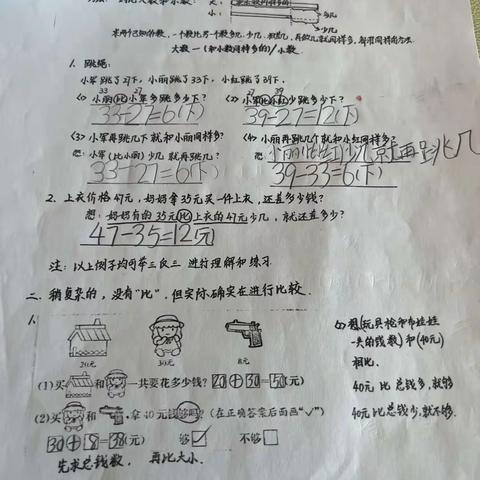 求两个已知的数，一个数比另一个数多几、少几、相差几，再做几就同样多，都用同样的方法。
大数－(和小数同样多的)/小数
1. 跳绳：
小军跳了27下，小丽跳了33下，小红跳了39下。
33 27 27 39
<1> 小丽比小军多跳多少下？ <2> 小军比小红少跳多少下？
33-27=6(下) 39-27=12(下)
<3> 小军再跳几下就和小丽同样多？ <4> 小丽再跳几个就和小红同样多？
想：小军(比小丽)少几 就再跳几？ 想：小丽比小红少几就再跳几
33-27=6(下) 39-33=6(下)
2. 上衣价格47元，妈妈拿35元买一件上衣，还差多少钱？
想：妈妈有的35元比上衣的47元少几，就还差多少？
47-35=12(元)
注：以上例子均可举三反三 进行理解和练习.
二、稍复杂的，没有“比”，但实际确实在进行比较.
1.
20元 30元 8元
(1)买和一共要花多少钱？20+30=50(元)
(2)买和，拿40元钱够吗？(在正确答案后面画“✓”)
30+8=38(元) 够✓ 不够□
先求总钱数，再比大小.
(2) 想(玩具枪和布娃娃
一共的钱数)和(40元)
相比.
40元比总钱多，就够
40元比总钱少，就不够.